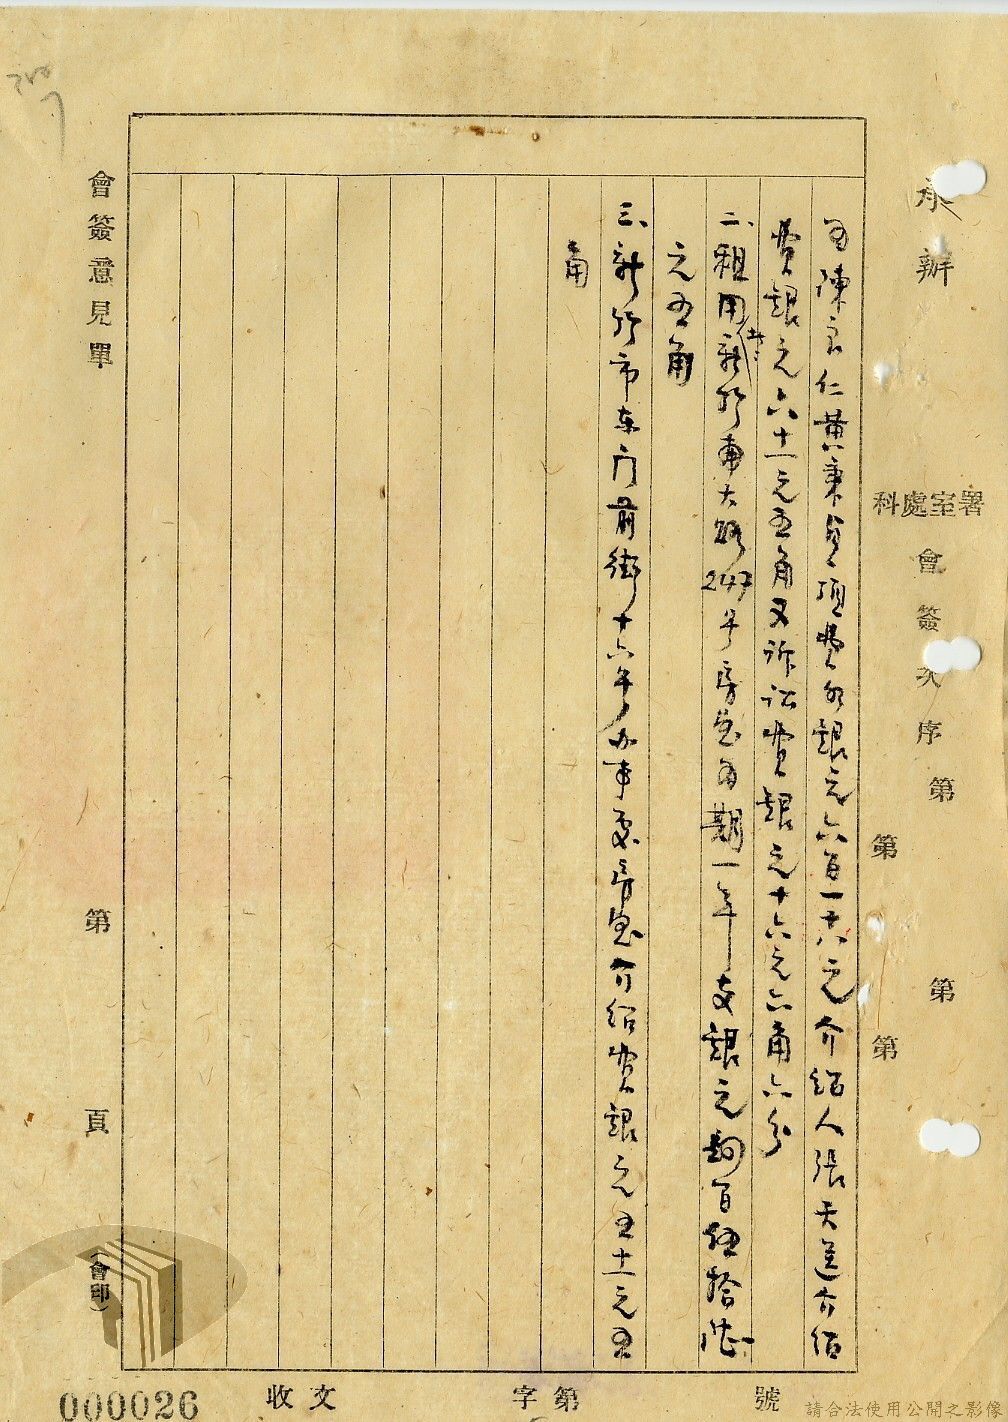 承辦
署室處科
會簽次序
第
第
第
第
陳良仁黃秉貞項費外銀元六百一十六元介紹人張天送介紹
費銀元六十一元五角又訴訟費銀元十六元六角六分
二、租用新竹市東大路247号房屋為期一年支銀元百伍拾陸
元五角
三、新竹市东门前街十六号办事處房屋介紹費銀元五十一元五
角
會簽意見單
第
頁
(會印)
收文
字第
號
000026
請合法使用公開之影像